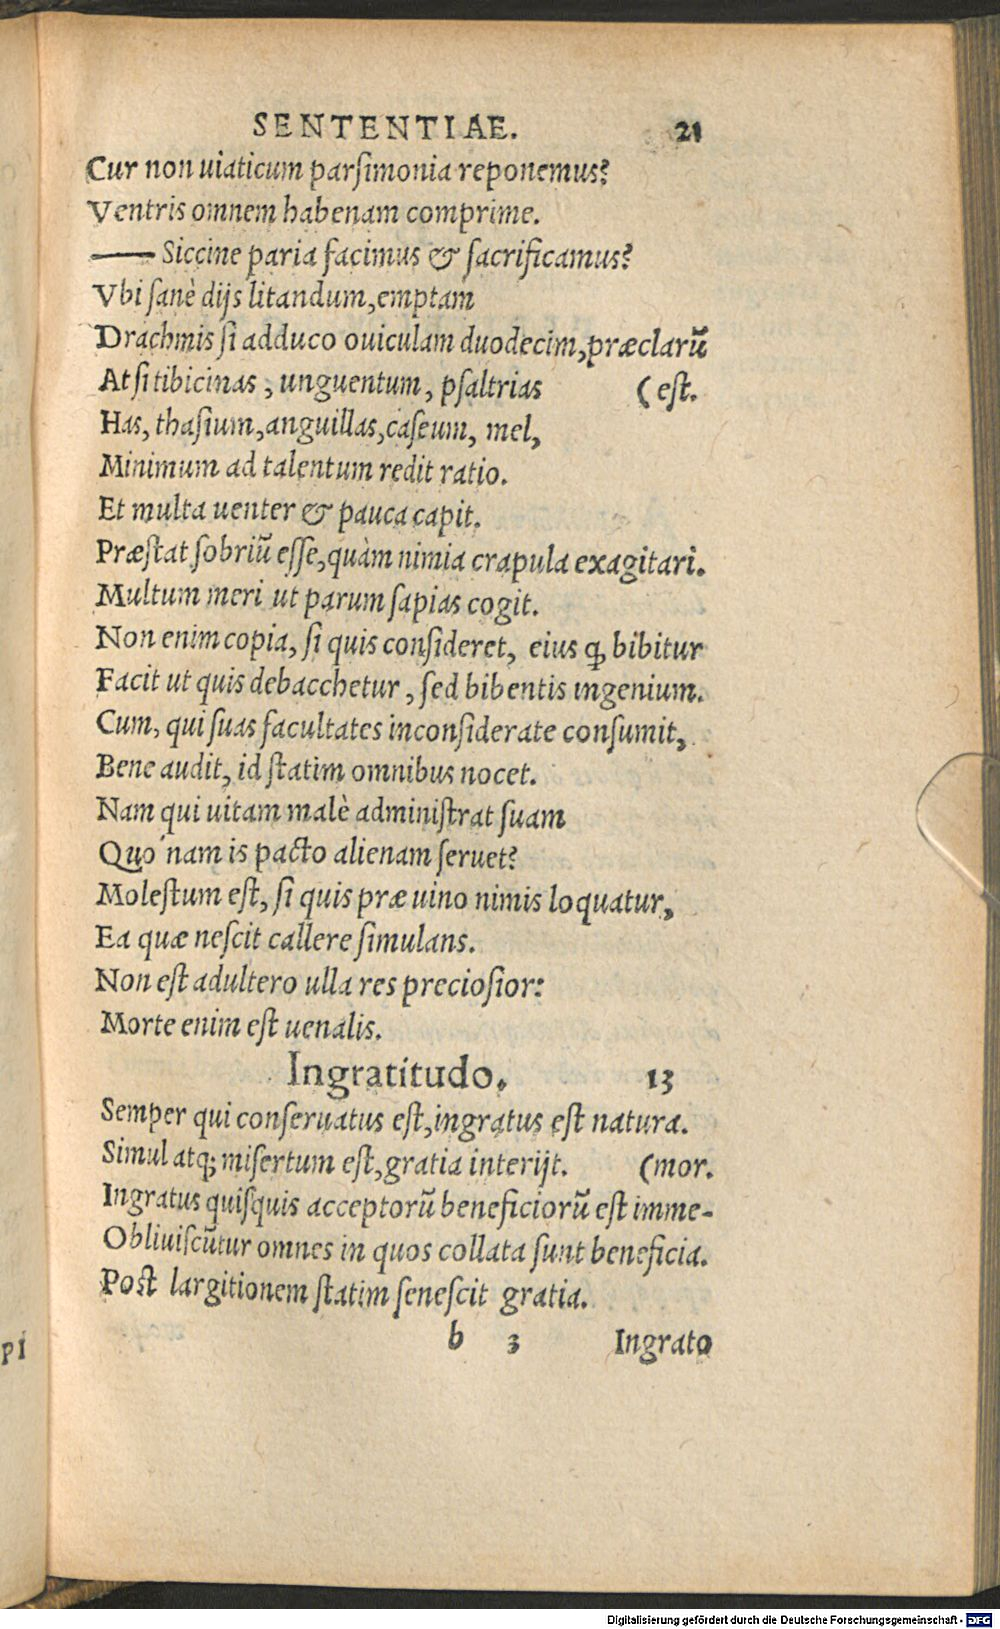 SENTENTIAE. 21
Cur non uiaticum parſimonia reponemus?
Ventris omnem habenam comprime.
—— Siccine paria facimus & ſacrificamus?
Vbi ſanè dijs litandum, emptam
Drachmis ſi adduco ouiculam duodecim, præclarũ
At ſi tibicinas, unguentum, pſaltrias (eſt.
Has, thaſium, anguillas, caſeum, mel,
Minimum ad talentum redit ratio.
Et multa uenter & pauca capit.
Præſtat ſobriũ eſſe, quàm nimia crapula exagitari.
Multum meri ut parum ſapias cogit.
Non enim copia, ſi quis conſideret, eius ꝙ bibitur
Facit ut quis debacchetur, ſed bibentis ingenium.
Cum, qui ſuas facultates inconſiderate conſumit,
Bene audit, id ſtatim omnibus nocet.
Nam qui uitam malè adminiſtrat ſuam
Quo nam is pacto alienam ſeruet?
Moleſtum eſt, ſi quis præ uino nimis loquatur,
Ea quæ neſcit callere ſimulans.
Non eſt adultero ulla res precioſior:
Morte enim eſt uenalis.
Ingratitudo. 13
Semper qui conſeruatus eſt, ingratus eſt natura.
Simul atq; miſertum eſt, gratia interijt. (mor.
Ingratus quiſquis acceptorũ beneficiorũ eſt imme-
Obliuiſcũtur omnes in quos collata ſunt beneficia.
Poſt largitionem ſtatim ſeneſcit gratia.
b 3 Ingrato
pi
Digitalisierung gefördert durch die Deutsche Forschungsgemeinschaft - DFG